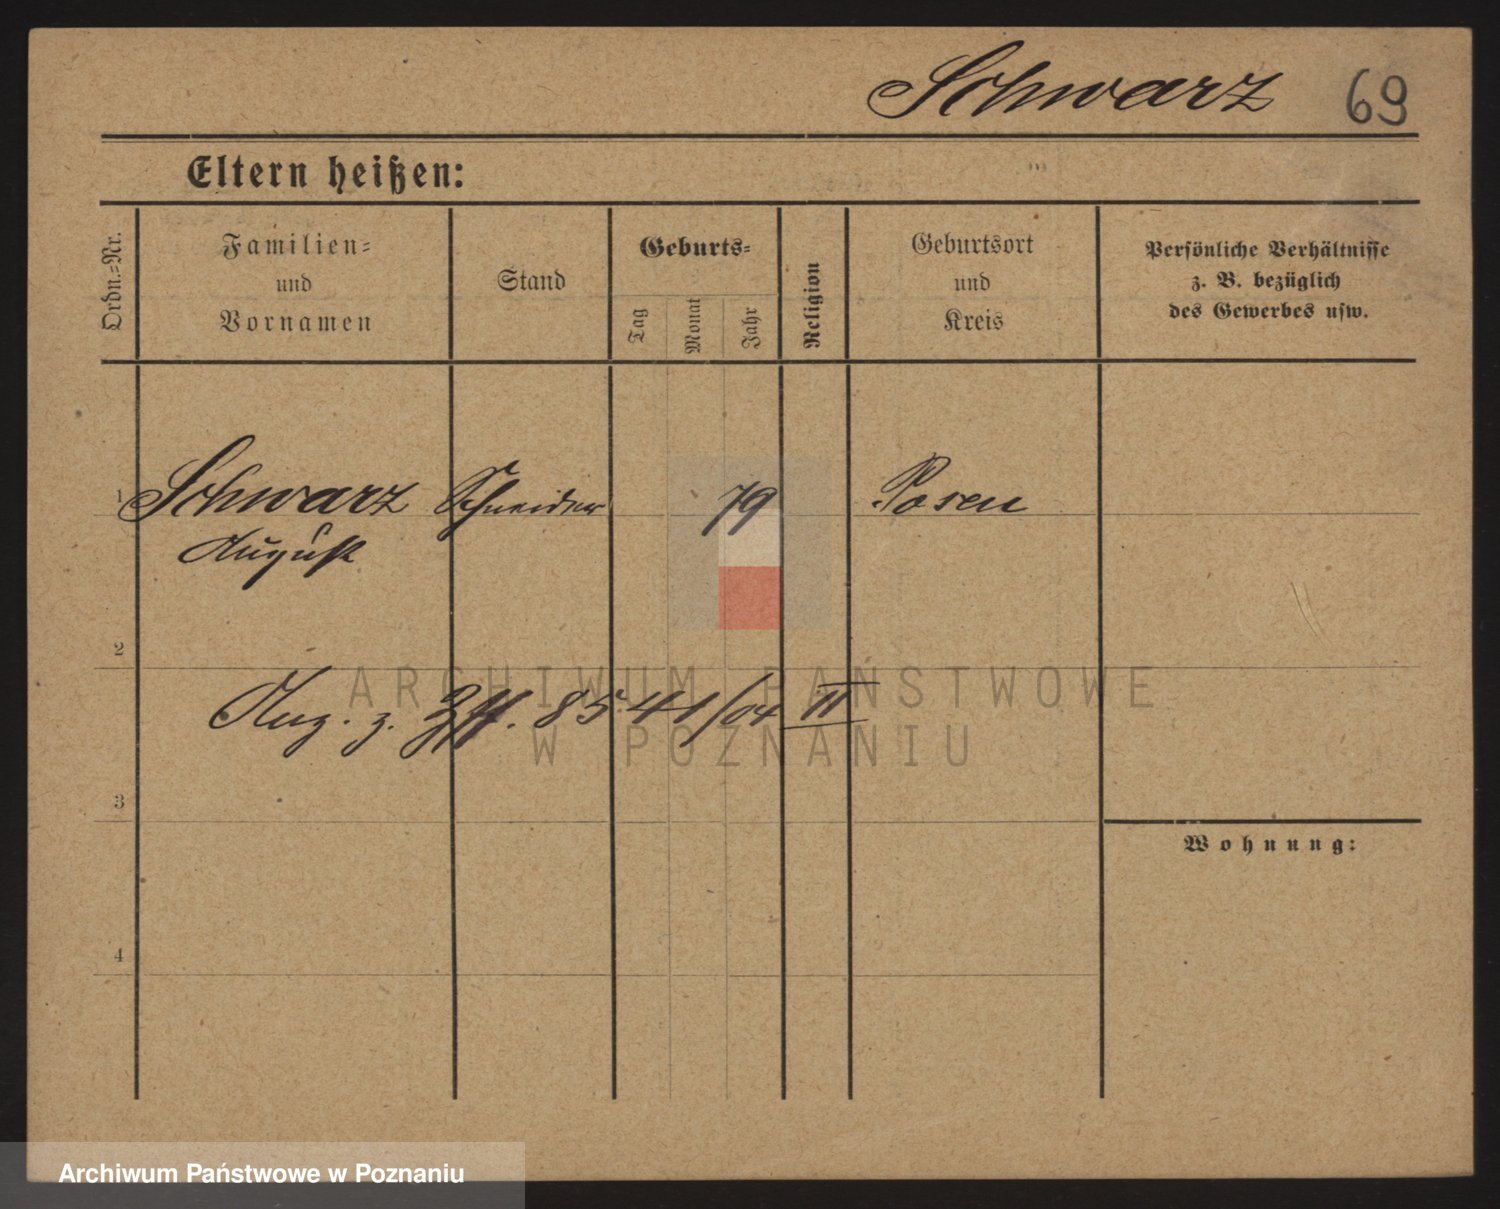 Schwarz 69
Eltern heißen:
Ordn.=Nr.
Familien=
und
Vornamen
Stand
Geburts=
Tag
Monat
Jahr
Religion
Geburtsort
und
Kreis
Persönliche Verhältnisse
z. B. bezüglich
des Gewerbes usw.
1 Schwarz Schneider 79 Posen
August
2
z. 85 41/04 II
3
Wohnung:
4
ARCHIWUM PAŃSTWOWE
W POZNANIU
Archiwum Państwowe w Poznaniu